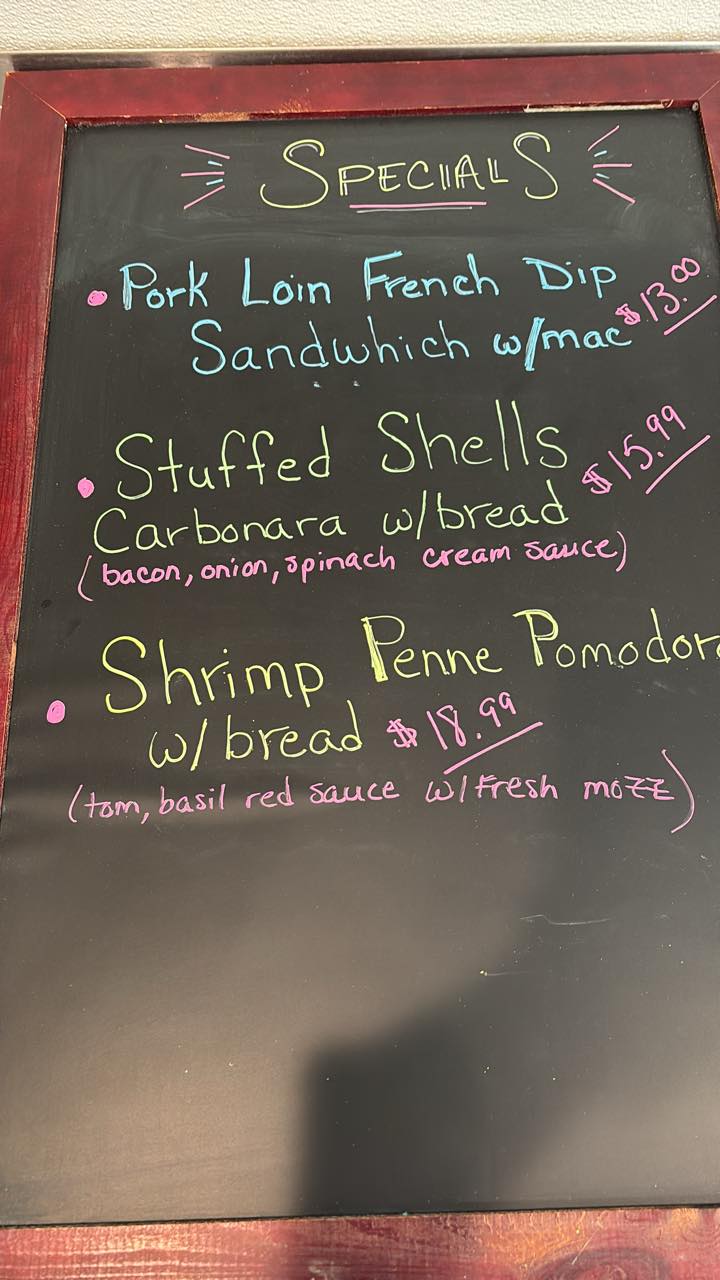 SPECIALS
• Pork Loin French Dip
Sandwhich w/mac $13.00
• Stuffed Shells
Carbonara w/bread $15.99
(bacon, onion, spinach cream sauce)
• Shrimp Penne Pomodoro
w/bread $18.99
(tom, basil red sauce w/fresh mozz)